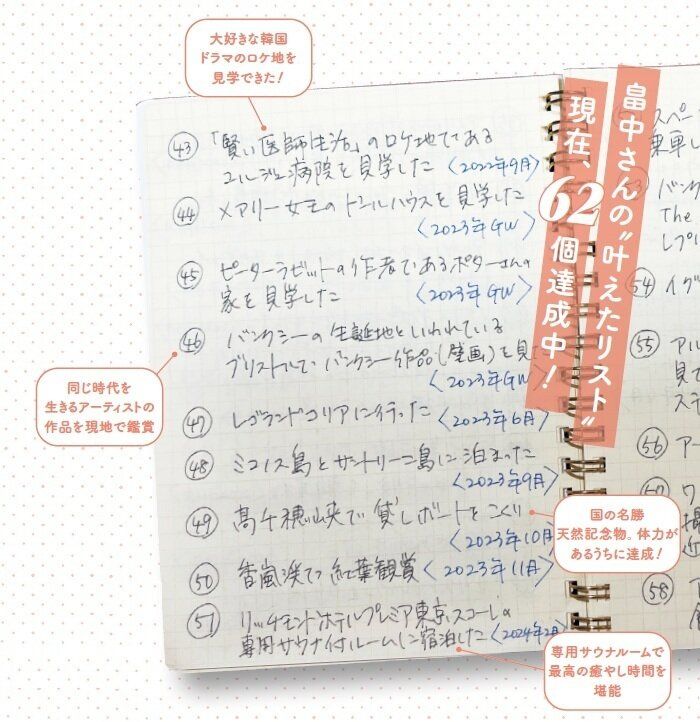 大好きな韓国
ドラマのロケ地を
見学できた!
畠中さんの“叶えたリスト”
現在、62個達成中!
㊸ 「賢い医師生活」のロケ地である
ユルジェ病院を見学した 〈2022年9月〉
㊹ メアリー女王のドールハウスを見学した
〈2023年GW〉
㊺ ピーターラビットの作者であるポターさんの
家を見学した 〈2023年GW〉
㊻ バンクシーの生誕地といわれている
ブリストルで、バンクシー作品(壁画)を見て
〈2023年GW〉
同じ時代を
生きるアーティストの
作品を現地で鑑賞
㊼ レゴランドコリアに行った 〈2023年6月〉
㊽ ミコノス島とサントリーニ島に泊まった
〈2023年9月〉
㊾ 高千穂峡で貸しボートをこぐ
〈2023年10月
国の名勝
天然記念物。体力が
あるうちに達成!
㊿ 香嵐渓で紅葉観賞〈2023年11月〉
51 リッチモンドホテルプレミア東京スコーレの
専用サウナ付ルームに宿泊した〈2024年2月〉
専用サウナルームで
最高の癒やし時間を
堪能
スペー
乗車し
バンク
The
レプリ
54 イグ
55 アル
見て
ステ
56 アー
ワ
58